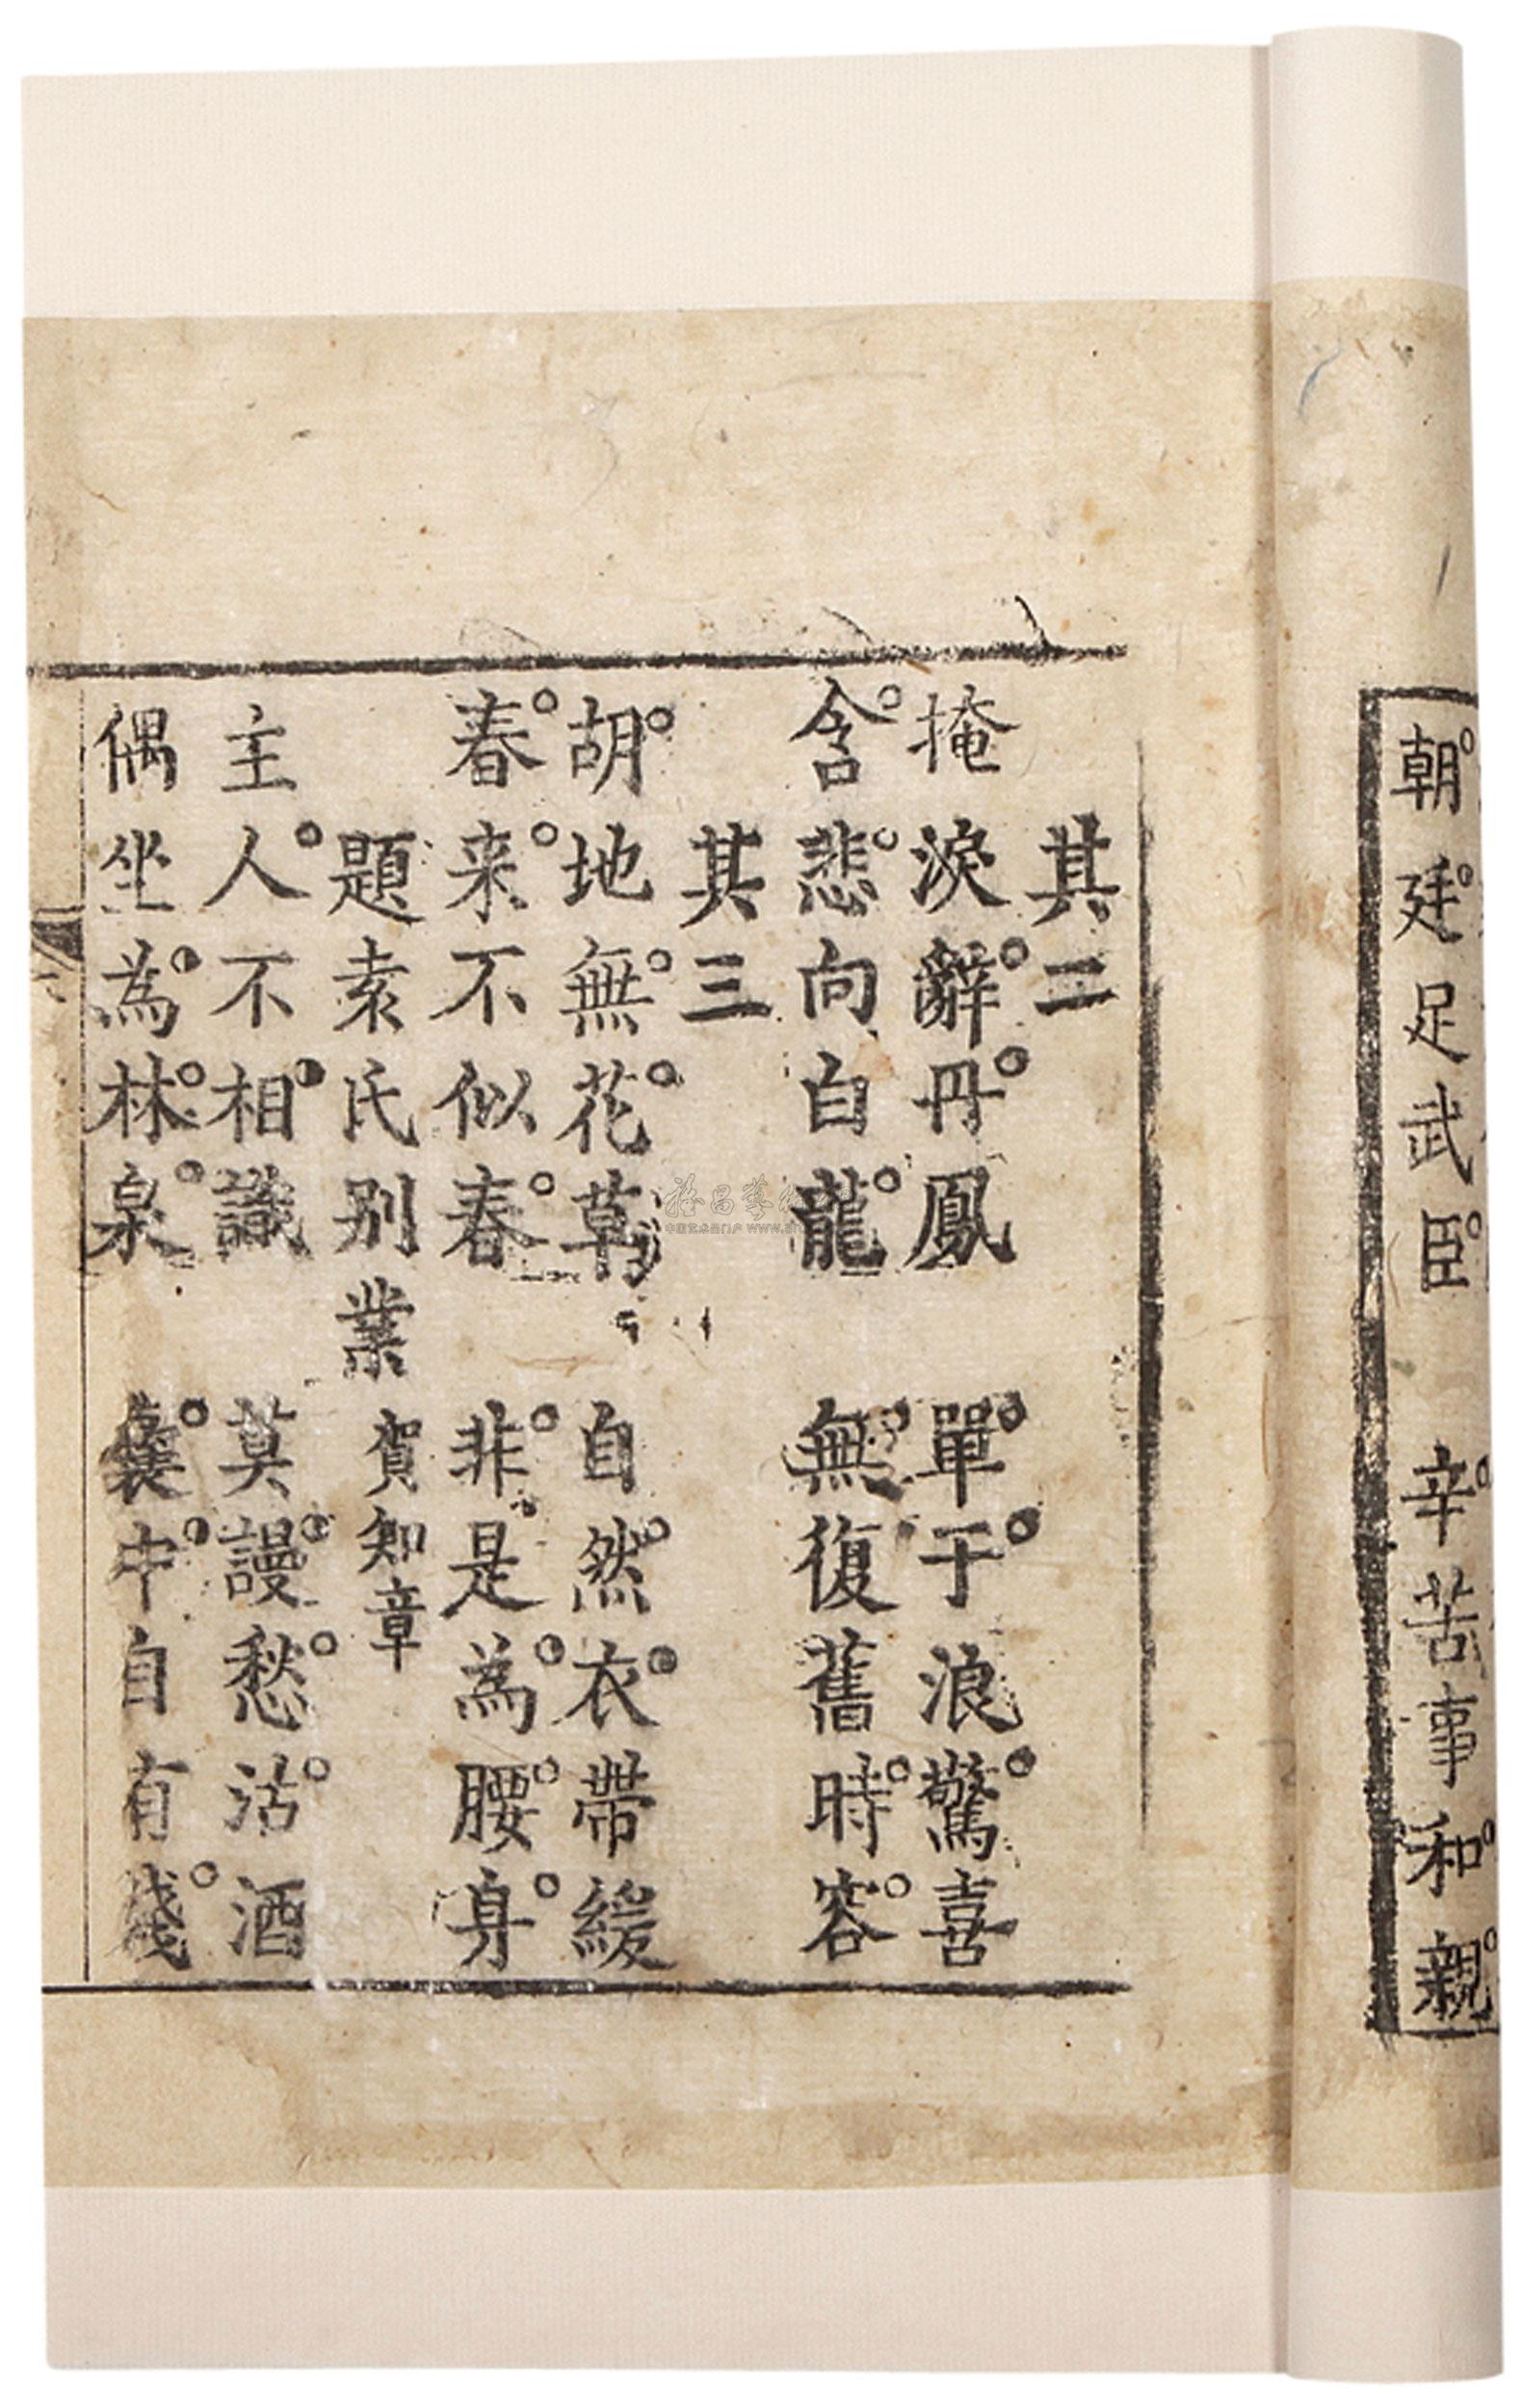 朝廷足武臣　辛苦事和親
其二
掩淚辭丹鳳　單于浪驚喜
含悲向白龍　無復舊時容
其三
胡地無花草　自然衣帶緩
春来不似春　非是為腰身
題袁氏别業　賀知章
主人不相識　莫謾愁沽酒
偶坐為林泉　囊中自有錢